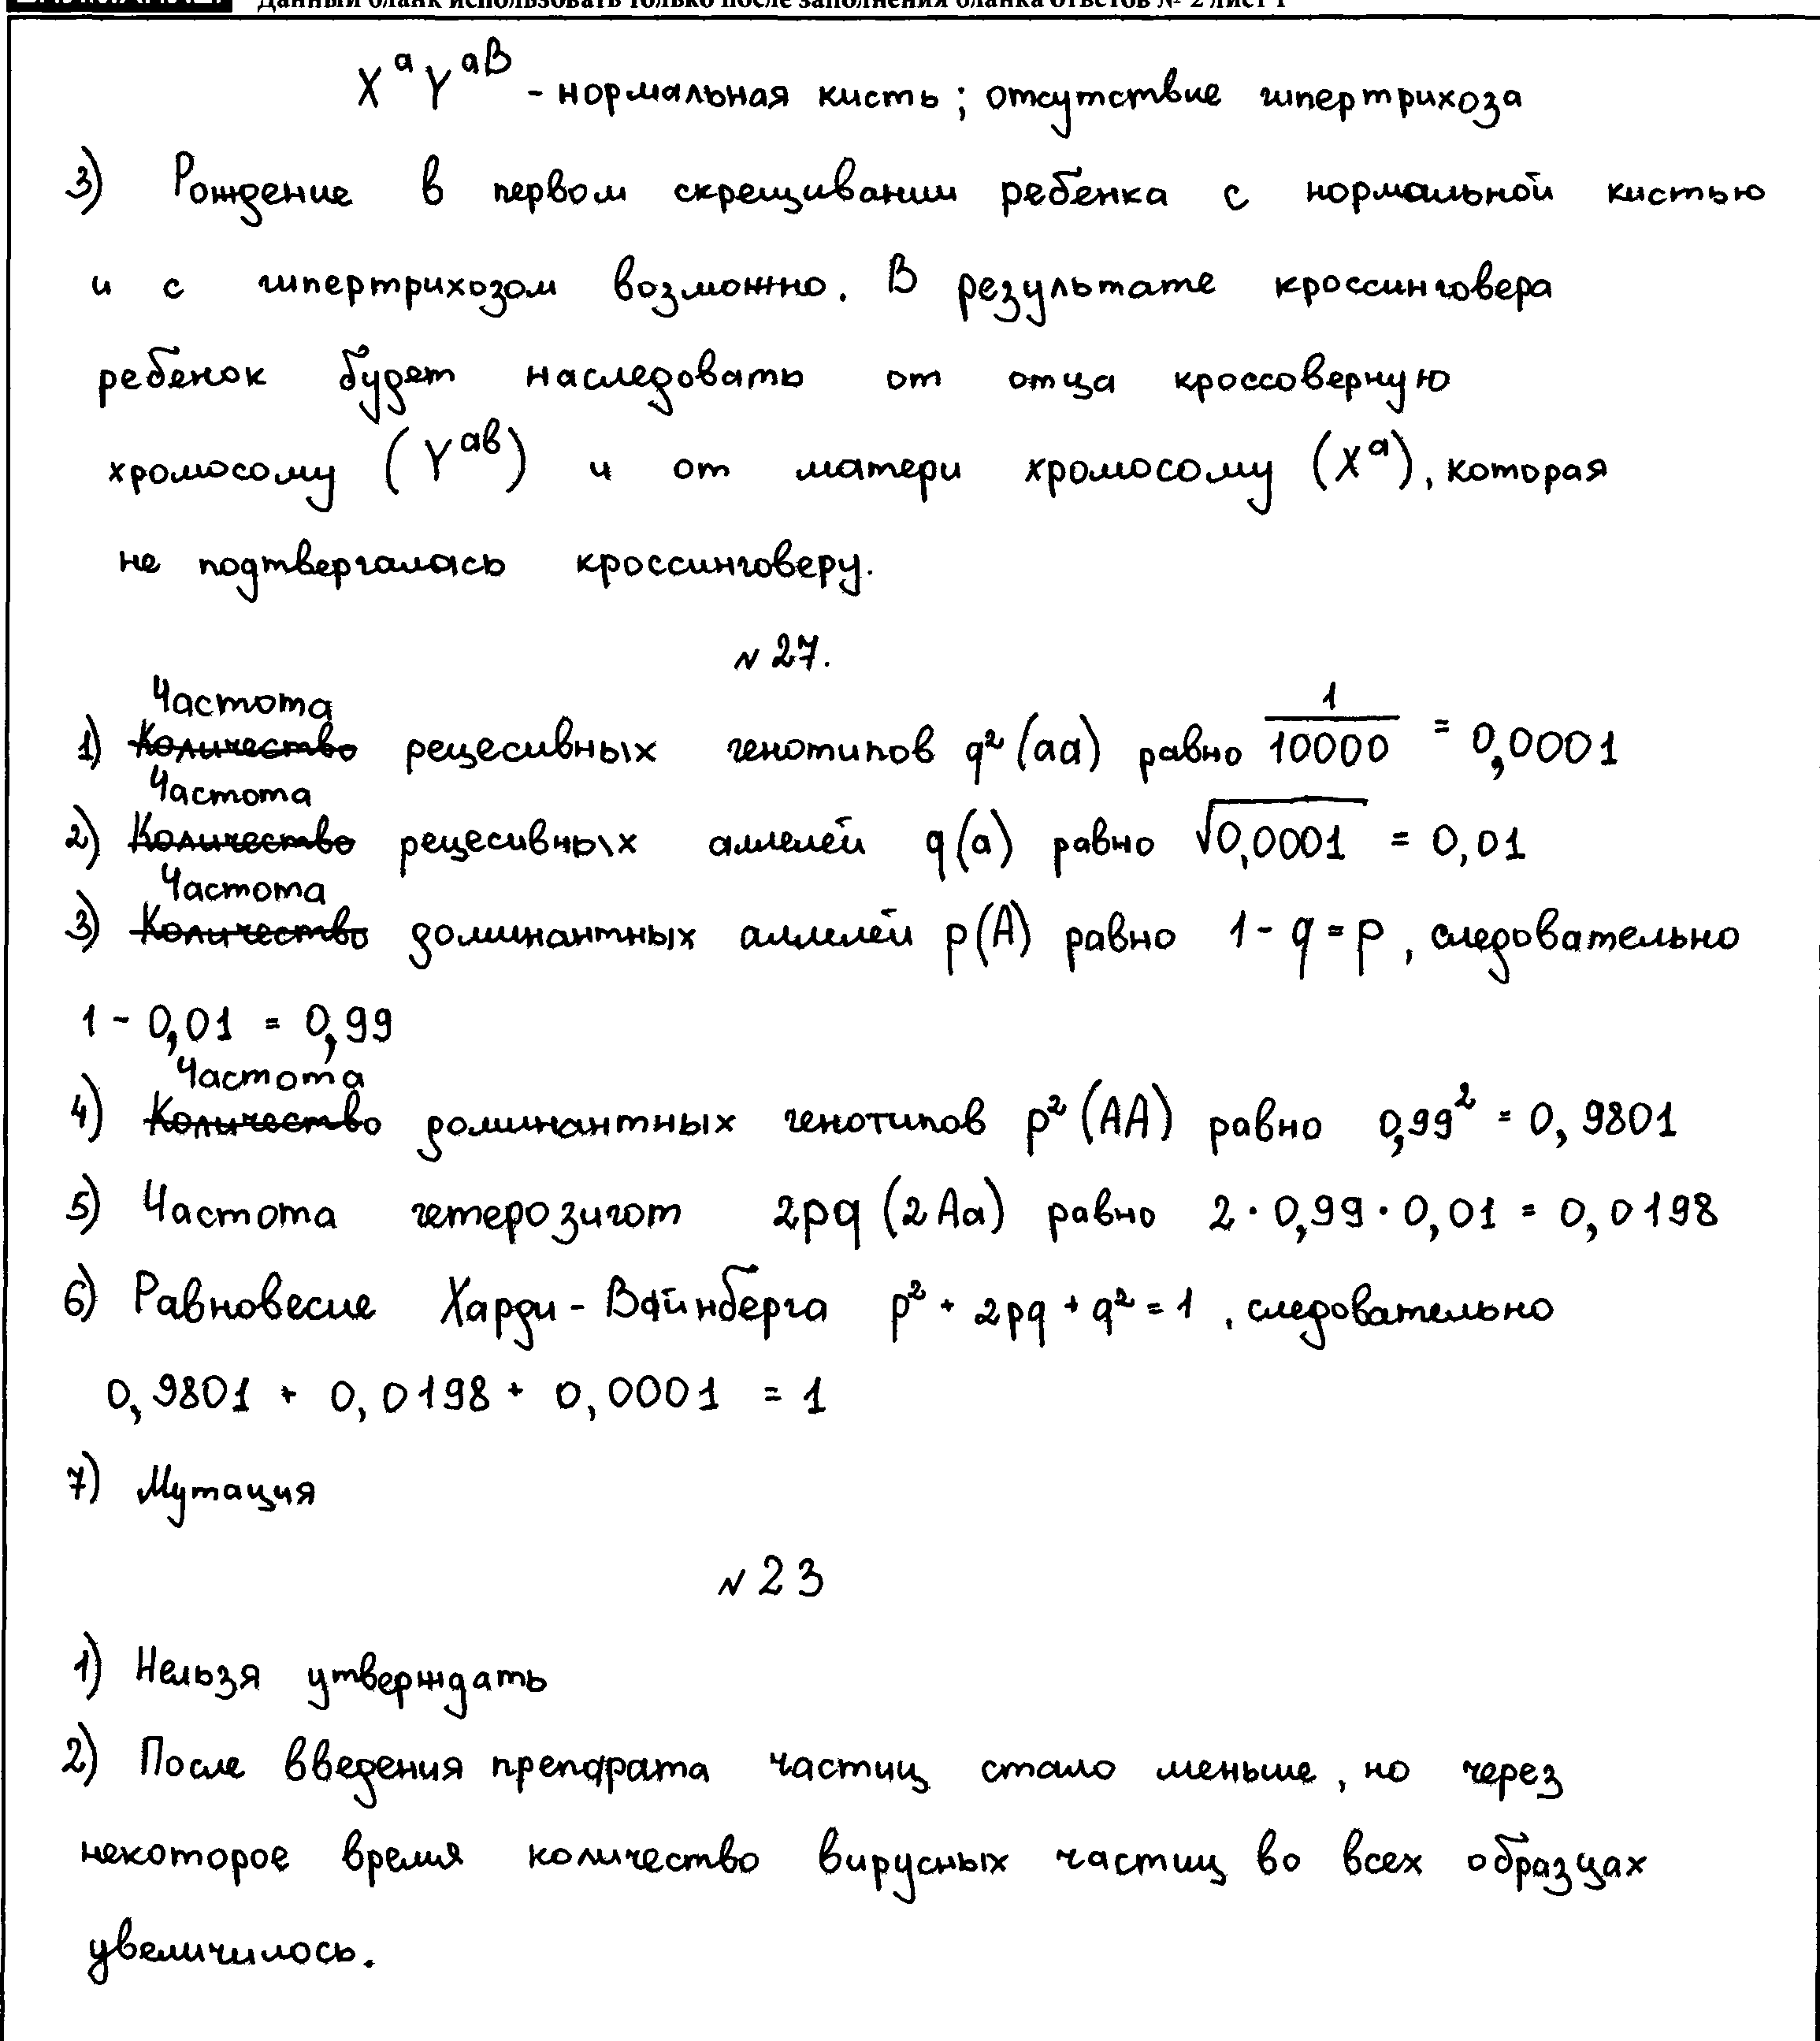 Данный бланк использовать только после заполнения бланка ответов № 2 лист 1
XᵃYᵃᴮ - нормальная кисть; отсутствие гипертрихоза
3) Рождение в первом скрещивании ребенка с нормальной кистью
и с гипертрихозом возможно. В результате кроссинговера
ребенок будет наследовать от отца кроссоверную
хромосому (Yᵃᵇ) и от матери хромосому (Xᵃ), которая
не подтвергалась кроссинговеру.
N 27.
1) Частота рецесивных генотипов q²(aa) равно 1/10000 = 0,0001
2) Частота рецесивных аллелей q(a) равно √0,0001 = 0,01
3) Частота доминантных аллелей p(A) равно 1 - q = p, следовательно
1 - 0,01 = 0,99
4) Частота доминантных генотипов p²(AA) равно 0,99² = 0,9801
5) Частота гетерозигот 2pq (2Aa) равно 2 · 0,99 · 0,01 = 0,0198
6) Равновесие Харди - Вайнберга p² + 2pq + q² = 1, следовательно
0,9801 + 0,0198 + 0,0001 = 1
7) Мутация
N 23
1) Нельзя утверждать
2) После введения препарата частиц стало меньше, но через
некоторое время количество вирусных частиц во всех образцах
увеличилось.